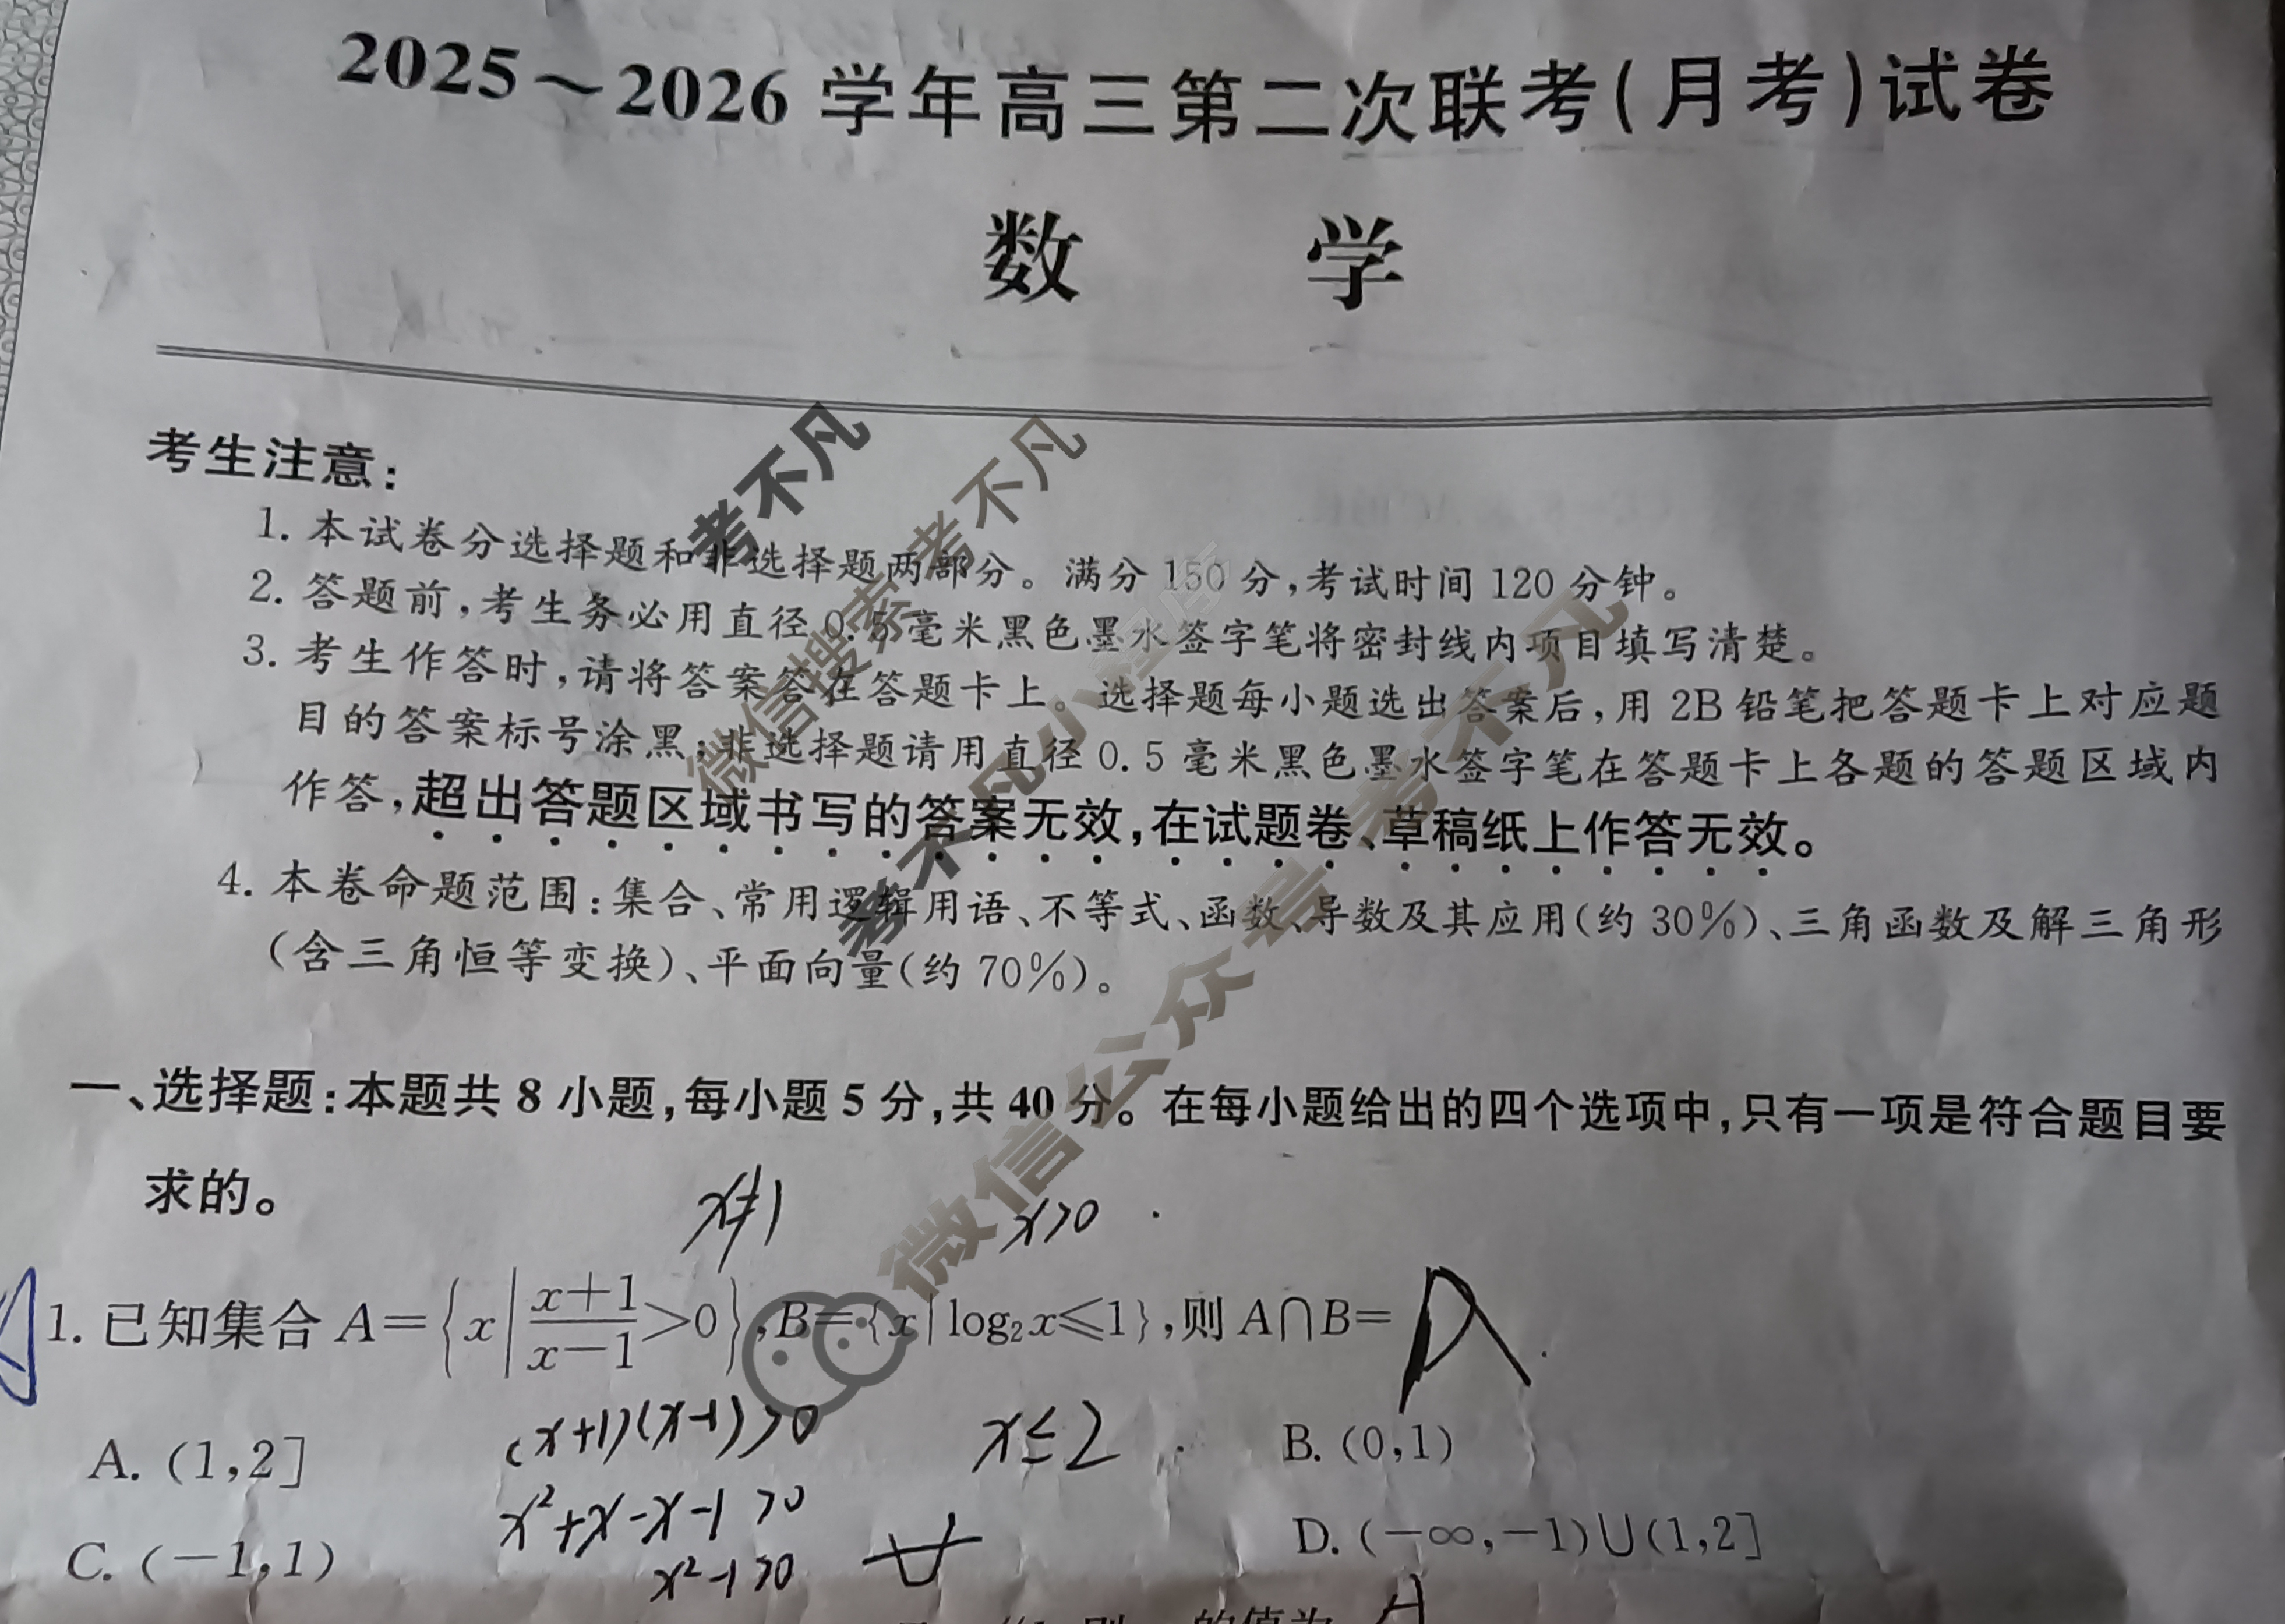 2025～2026 学年高三第二次联考(月考)试卷
数 学
考生注意:
1. 本试卷分选择题和非选择题两部分。满分 150 分,考试时间 120 分钟。
2. 答题前,考生务必用直径 0.5 毫米黑色墨水签字笔将密封线内项目填写清楚。
3. 考生作答时,请将答案答在答题卡上。选择题每小题选出答案后,用 2B 铅笔把答题卡上对应题
目的答案标号涂黑;非选择题请用直径 0.5 毫米黑色墨水签字笔在答题卡上各题的答题区域内
作答,超出答题区域书写的答案无效,在试题卷、草稿纸上作答无效。
4. 本卷命题范围:集合、常用逻辑用语、不等式、函数、导数及其应用(约 30%)、三角函数及解三角形
(含三角恒等变换)、平面向量(约 70%)。
考不凡
微信搜索 考不凡
考不凡小程序
微信公众号 考不凡
一、选择题:本题共 8 小题,每小题 5 分,共 40 分。在每小题给出的四个选项中,只有一项是符合题目要
求的。
x≠1 x>0
1. 已知集合 A={x|(x+1)/(x−1)>0},B={x|log₂x≤1},则 A∩B= A
(x+1)(x-1)>0 x≤2
A. (1,2] B. (0,1)
x²+x-x-1>0
C. (−1,1) D. (−∞,−1)∪(1,2]
x²-1>0
则 的值为 A